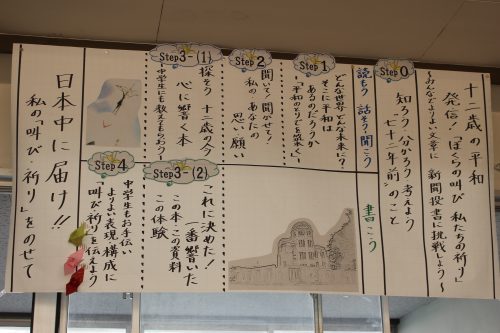 十二歳の平和
発信!「ぼくらの叫び 私たちの祈り」
~みんなでよりよい文章に 新聞投書に挑戦しよう~
Step0
知ろう 分かろう 考えよう
七十二年前のこと
読もう 話そう 聞こう
書こう
Step1
どんな世界 どんな未来に?
そこに平和は
あるのだろうか
「平和のとりでを築く」
Step2
聞いて!聞かせて!
私の あなたの
思い 願い
Step3-(1)
探そう 十二歳の今
心に響く本
中学生にも教えてもらおう
Step3-(2)
これに決めた!
一番響いた
この本・この資料
この体験
Step4
中学生もお手伝い
よりよい表現・構成に
「叫び 祈り」を伝えよう
日本中に届け!!
私の「叫び 祈り」をのせて